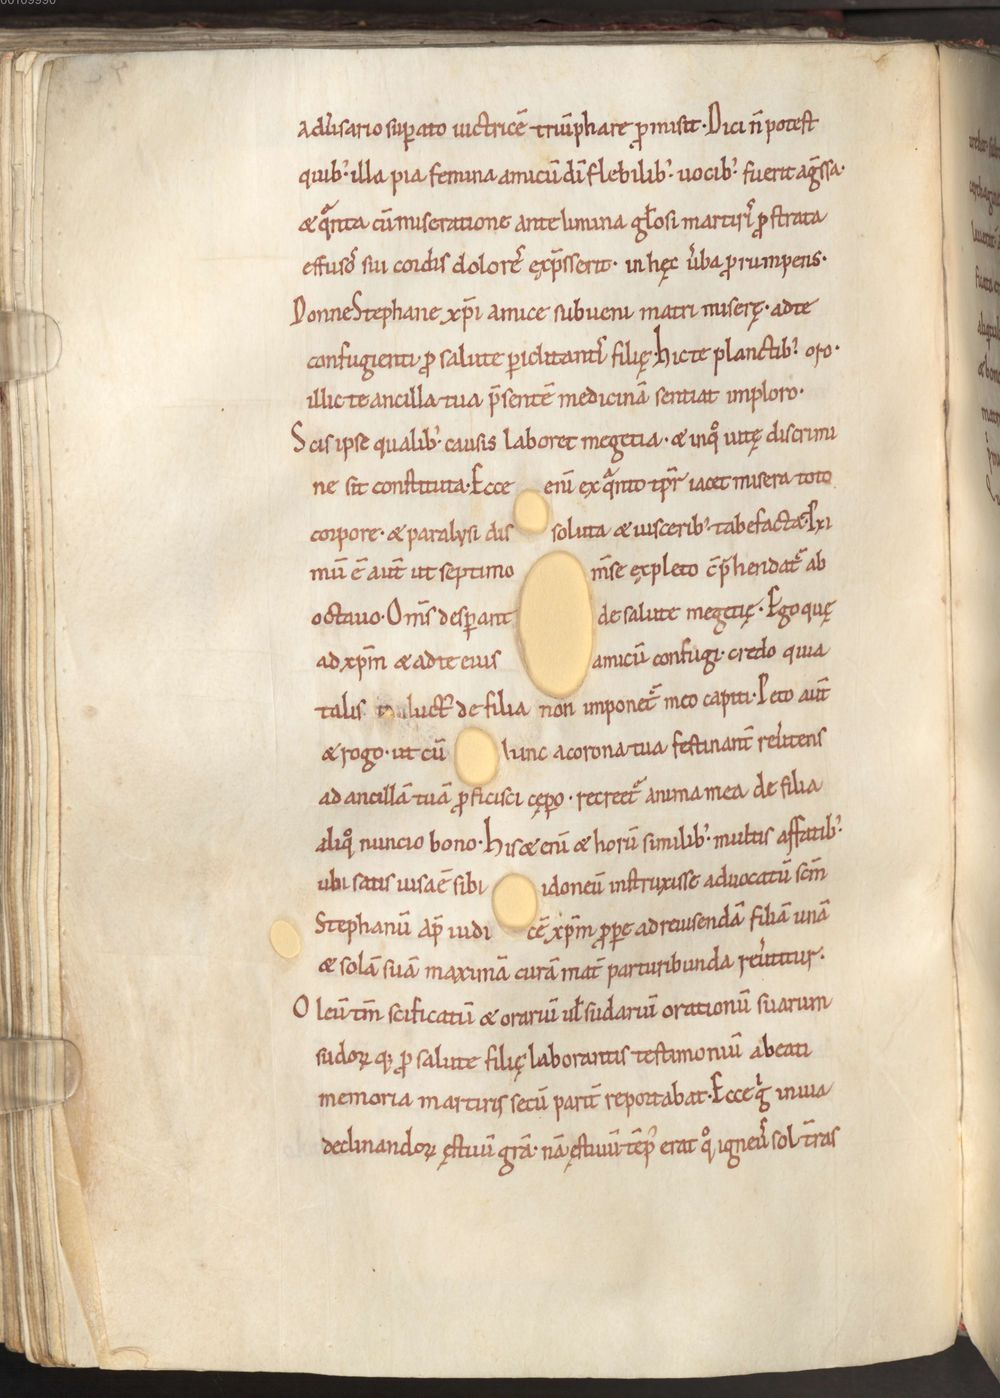 adůsario suꝑato uictricē triūphare ꝓmisit. Dici n̄ potest
quib; illa pia femina amicū dī flebilib; uocib; fuerit ag̃ssa.
& qͣnta cū miseratione ante limina gl̃osi martiriˢ ꝓstrata
effusoˢ sui cordis doloreˢ exp̃sserit. in hęc ůba prorumpens.
Donne Stephane xp̄i amice subueni matri miserę. ad te
confugienti ꝓ salute ꝑiclitantiˢ filię. hic te planctib; oro.
illic te ancilla tua p̄sentē medicinā sentiat imploro.
Scis ipse qualib; causis laboret megetia. & in qͦ uitę discrimi
ne sit constituta. Ecce enī ex qͣnto tp̄r iacet misera toto
corpore. & paralysi dissoluta & uiscerib; tabefacta. Pxi
mū ē aut̄ ut septimo m̄se expleto cp̄hendat᷑ ab
octauo. Om̄s desꝑant de salute megetię. Ego quę
ad xp̄m & ad te eius amicū confugi. credo quia
talis luct᷒ de filia non imponet᷑ meo capiti. Peto aut̄
& rogo. ut cū hinc a corona tua festinant̄ reůtens
ad ancillā tuā ꝓficisci cępo. recreet᷑ anima mea de filia
aliqͦ nuncio bono. His & enī & horū similib; multis affatib;
ubi satis uisa ē sibi idoneū instruxisse aduocatū sc̄m
Stephanū ap̄ iudicē xp̄m ꝓꝑe ad reuisendā filiā unā
& solā suā maximā curā mat̄ parturibunda reůtitur.
Oleū tm̄ scificatū & orariū ul̄ sudariū orationū suarum
sudorꝝ q; ꝓ salute filię laborantis testimoniū a beati
memoria martiris secū parit̄ reportabat. Ecce gͥ in uia
declinandorꝝ ęstiuū grā. nā ęstiuū tēpˢ erat qͦ igneuˢ sol t̄ras